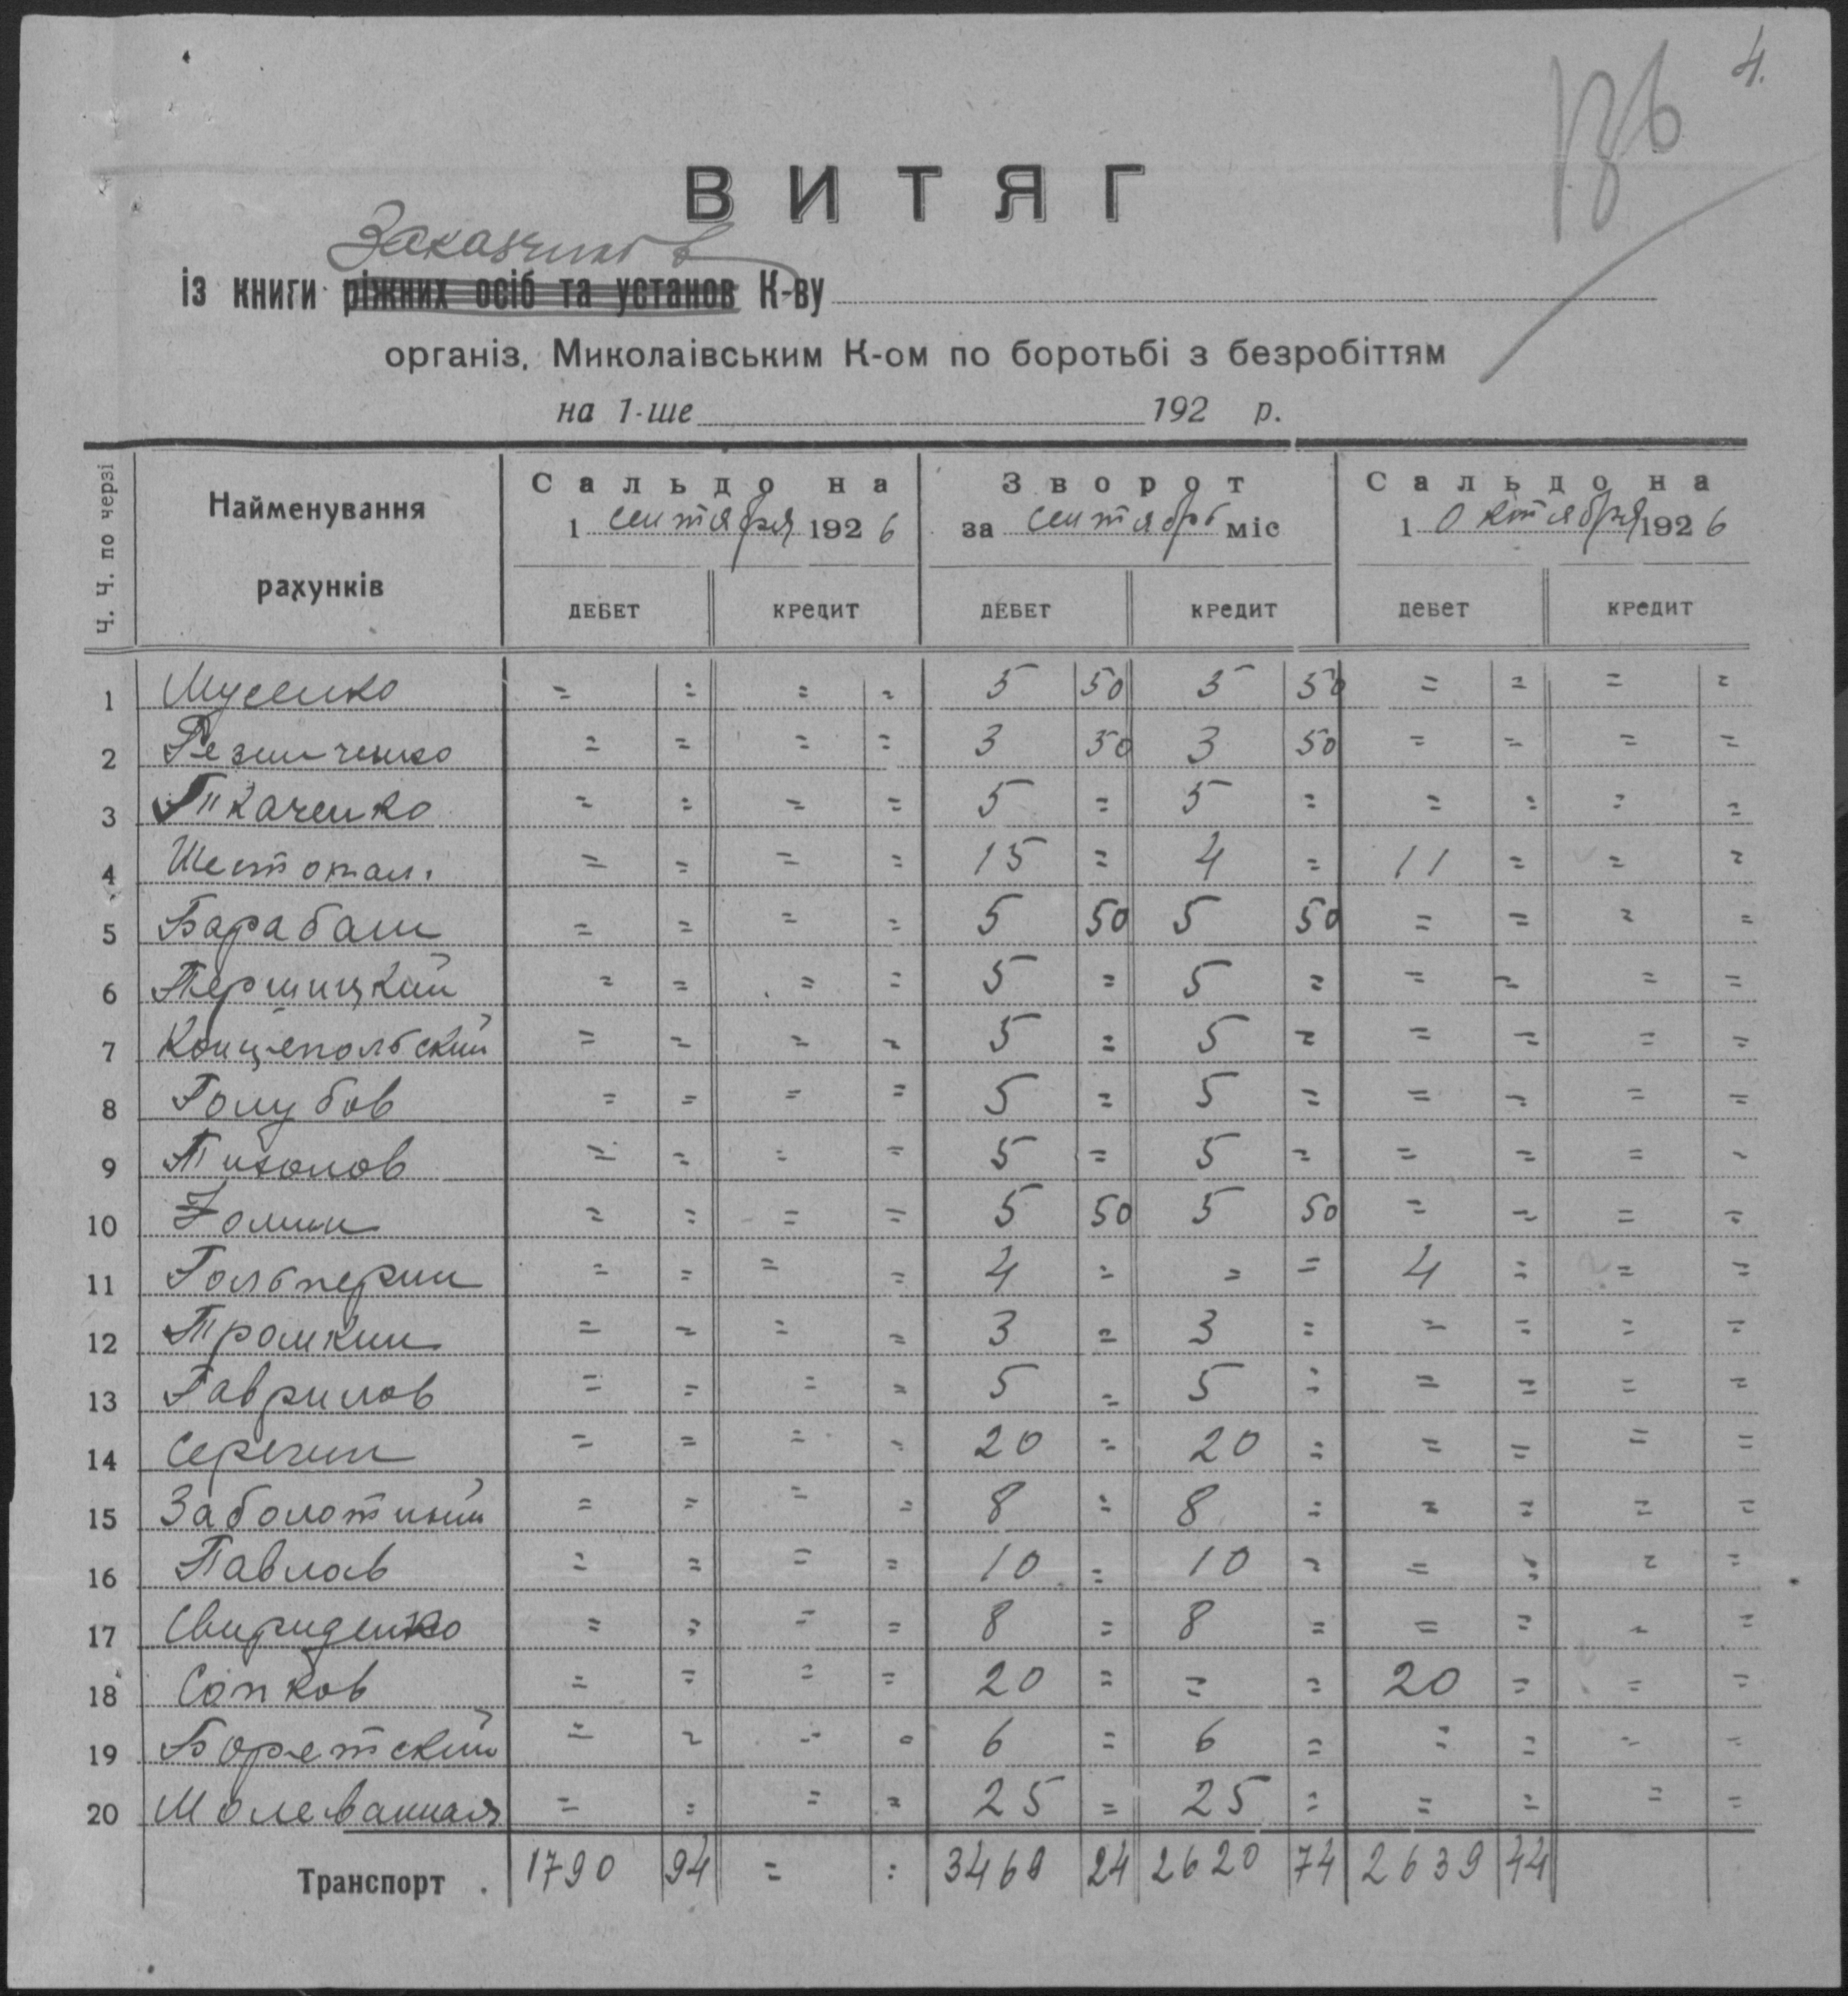 4.
В И Т Я Г
Заказчиков
із книги ріжних осіб та установ К-ву
організ, Миколаівським К-ом по боротьбі з безробіттям
на 1-ше 192 р.
Ч. Ч. по черзі
Найменування рахунків
Сальдо на 1 сентября 1926
Зворот за сентябрь міс
Сальдо на 1 октября 1926
ДЕБЕТ КРЕДИТ ДЕБЕТ КРЕДИТ ДЕБЕТ КРЕДИТ
1 Мусенко = = = = 5 50 5 50 = = = =
2 Резниченко = = = = 3 50 3 50 = = = =
3 Ткаченко = = = = 5 = 5 = = = = =
4 Шестопал. = = = = 15 = 4 = 11 = = =
5 Барабаш = = = = 5 50 5 50 = = = =
6 Першицкий = = = = 5 = 5 = = = = =
7 Концепольский = = = = 5 = 5 = = = = =
8 Голубов = = = = 5 = 5 = = = = =
9 Тихонов = = = = 5 = 5 = = = = =
10 = = = = 5 50 5 50 = = = =
11 Гольперин = = = = 4 = = = 4 = = =
12 Трошкин = = = = 3 = 3 = = = = =
13 Гаврилов = = = = 5 = 5 = = = = =
14 Серегин = = = = 20 = 20 = = = = =
15 Заболотный = = = = 8 = 8 = = = = =
16 Павлов = = = = 10 = 10 = = = = =
17 Свириденко = = = = 8 = 8 = = = = =
18 Сопков = = = = 20 = = = 20 = = =
19 Боретский = = = = 6 = 6 = = = = =
20 Молеванная = = = = 25 = 25 = = = = =
Транспорт 1790 94 = = 3469 24 2620 74 2639 44